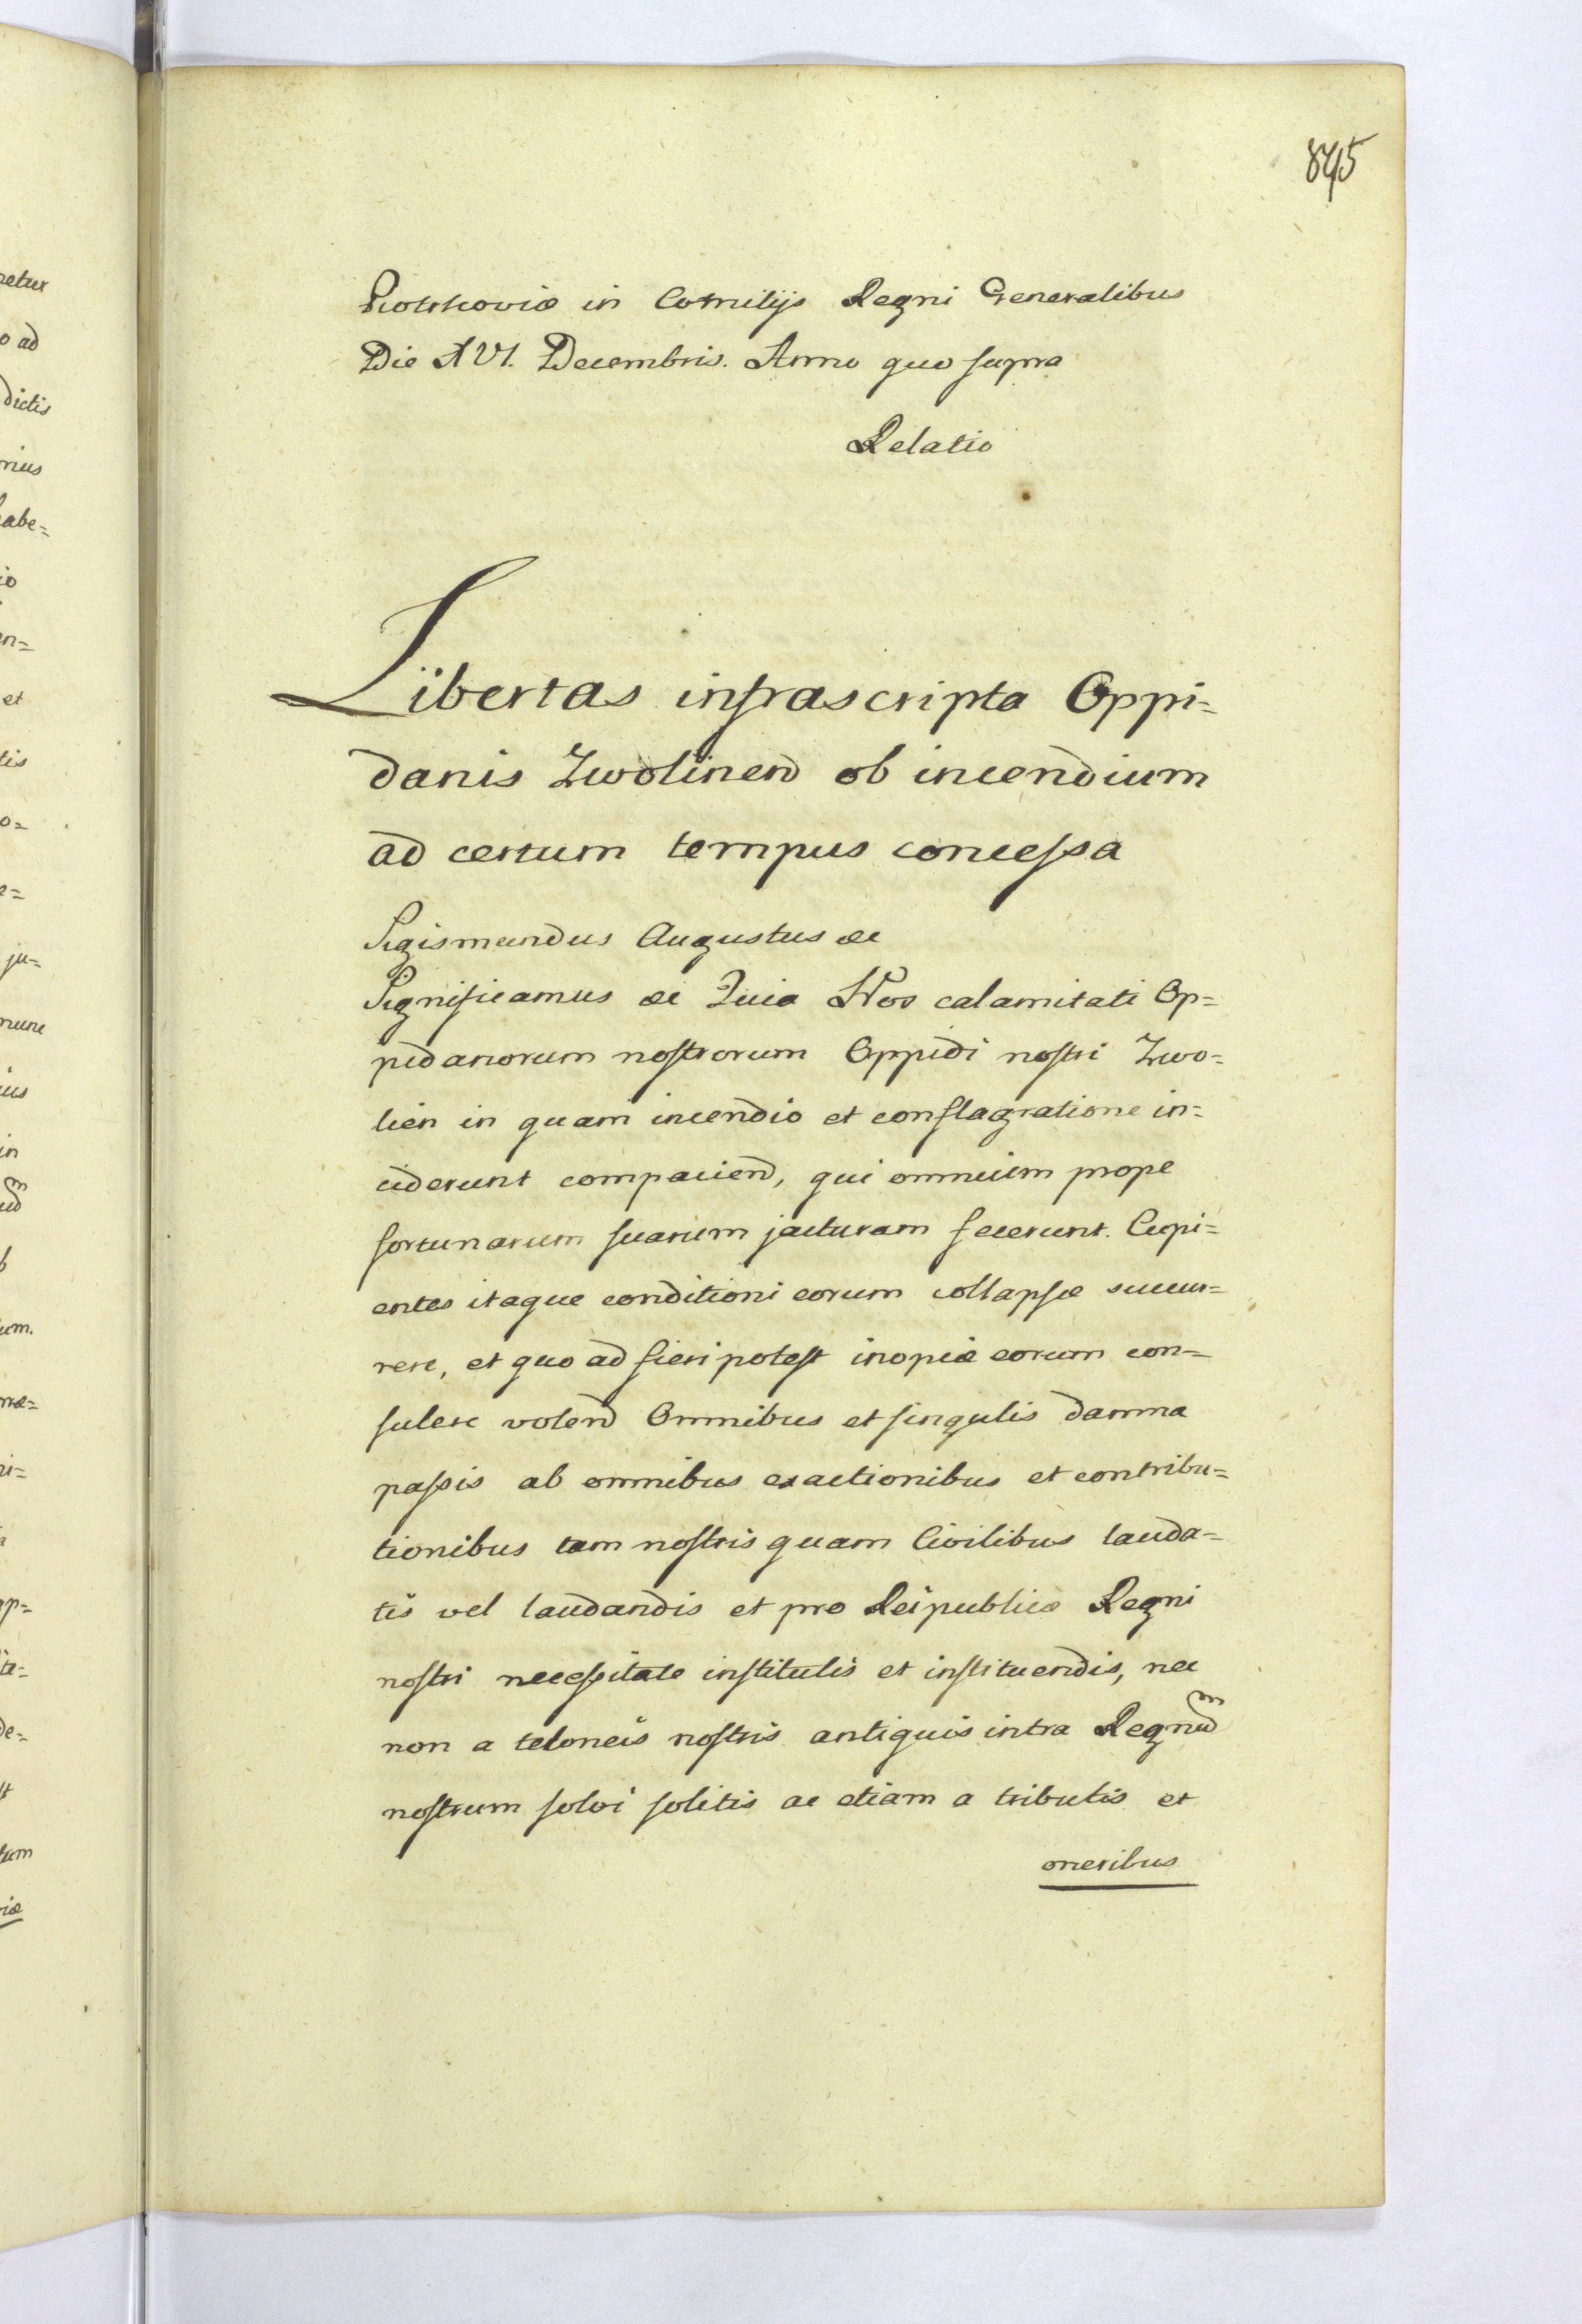 845
Piotrkoviæ in Comitijs Regni Generalibus
Die XVI. Decembris. Anno quo supra
Relatio
Libertas infrascripta Oppi=
danis Zwolinen̄ ob incendium
ad certum tempus concessa
Sigismundus Augustus &c
Significamus &c Quia Nos calamitati Op=
pidanorum nostrorum Oppidi nostri Zwo=
lien in quam incendio et conflagratione in=
ciderunt compacien̄, qui omnium prope
fortunarum suarum jacturam fecerunt. Cupi=
entes itaque conditioni eorum collapsæ succur=
rere, et quo ad fieri potest inopiæ eorum con=
sulere volen̄ Omnibus et singulis damna
passis ab omnibus exactionibus et contribu=
tionibus tam nostris quam Civilibus lauda=
tis vel laudandis et pro Reipublicæ Regni
nostri necessitate institutis et instituendis, nec
non a teloneis nostris antiquis intra Regnum
nostrum solvi solitis ac etiam a tributis et
oneribus